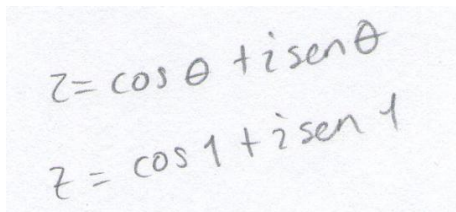 z = cos θ + i sen θ
z = cos 1 + i sen 1